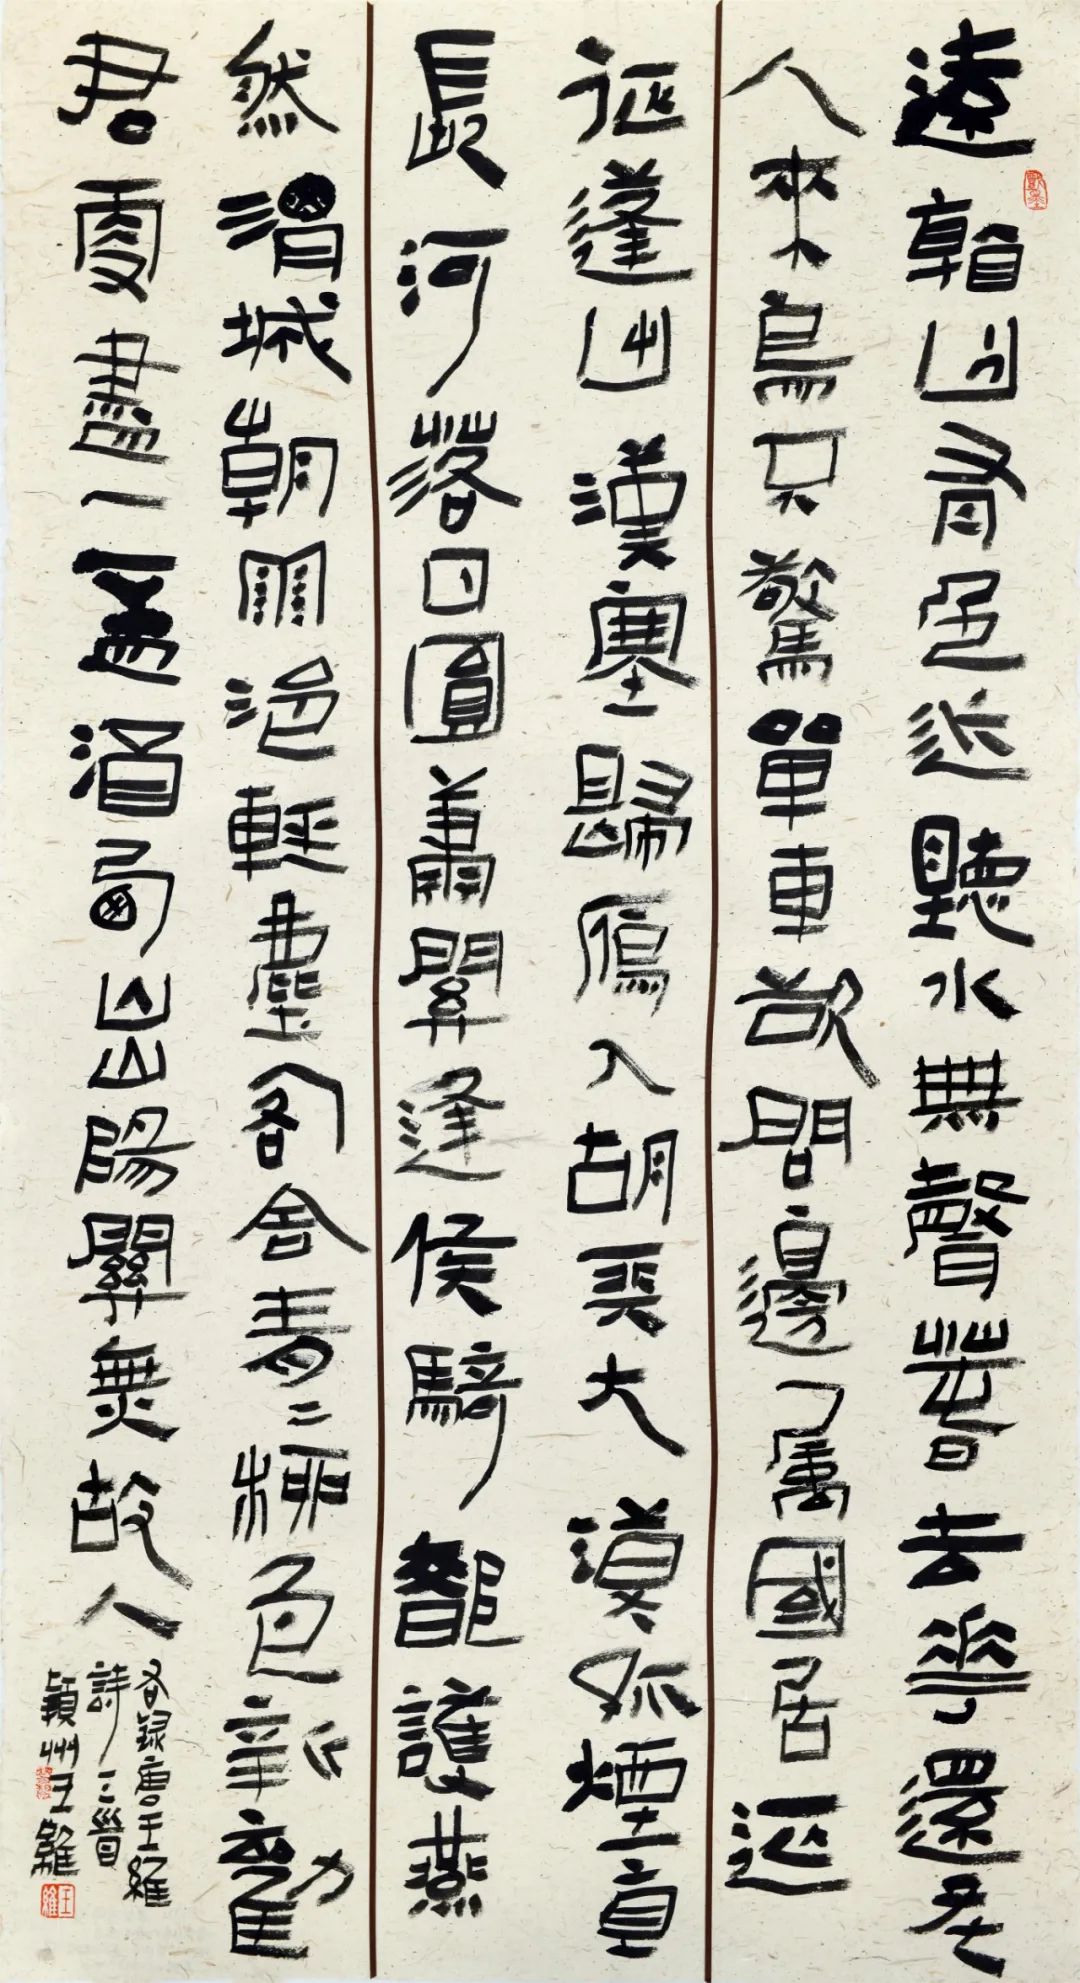 遠看山有色近聽水無聲春去花還在
人來鳥不驚單車欲問邊屬國居延
征蓬出漢塞歸雁入胡天大漠孤煙直
長河落日圓蕭關逢候騎都護燕
然渭城朝雨浥輕塵客舍青二柳色新勸
君更盡一盃酒西出陽關無故人
右錄唐王維
詩三首
潁州王